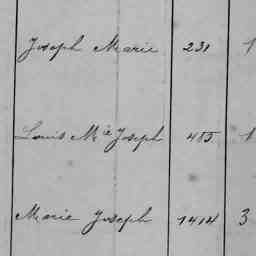 Joseph Marie 231 1
Louis Mie Joseph 485 1
Marie Joseph 1414 3